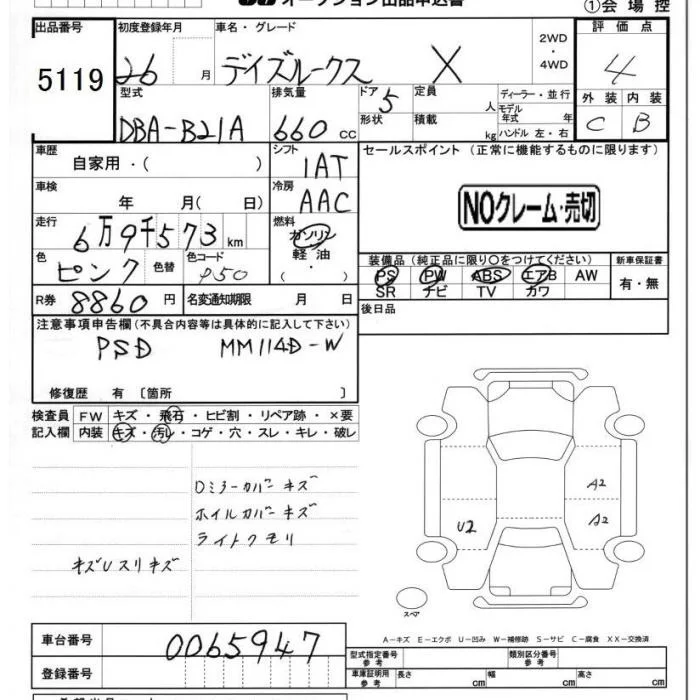 オークション出品申込書
①会場控
出品番号 初度登録年月 車名・グレード 評価点
5119 26 月 デイズルークス X 2WD・4WD 4
型式 排気量 ドア 5 定員 人 ディーラー・並行 外装 内装
DBA-B21A 660 cc 形状 積載 kg モデル年式 年 ハンドル 左・右 C B
車歴 自家用・( ) シフト 1AT セールスポイント (正常に機能するものに限ります)
車検 年 月( 日) 冷房 AAC NOクレーム・売切
走行 6万9千573 km 燃料 ガソリン 軽油 ・( )
色 ピンク 色替 色コード P50 装備品 (純正品に限り○をつけてください) 新車保証書
PS PW ABS エアB AW 有・無
SR ナビ TV カワ
R券 8860 円 名変通知期限 月 日 後日品
注意事項申告欄 (不具合内容等は具体的に記入して下さい)
PSD MM114D-W
修復歴 有 〔箇所 〕
検査員 FW キズ・飛石・ヒビ割・リペア跡・×要
記入欄 内装 キズ・汚レ・コゲ・穴・スレ・キレ・破レ
Dミラーカバーキズ
ホイルカバーキズ
ライトクモリ
キズUスリキズ
A2
A2
U2
スペア
A-キズ E-エクボ U-凹み W-補修跡 S-サビ C-腐食 XX-交換済
車台番号 0065947 型式指定番号 参考 類別区分番号 参考
登録番号 車庫証明用 参考 長さ cm 幅 cm 高さ cm